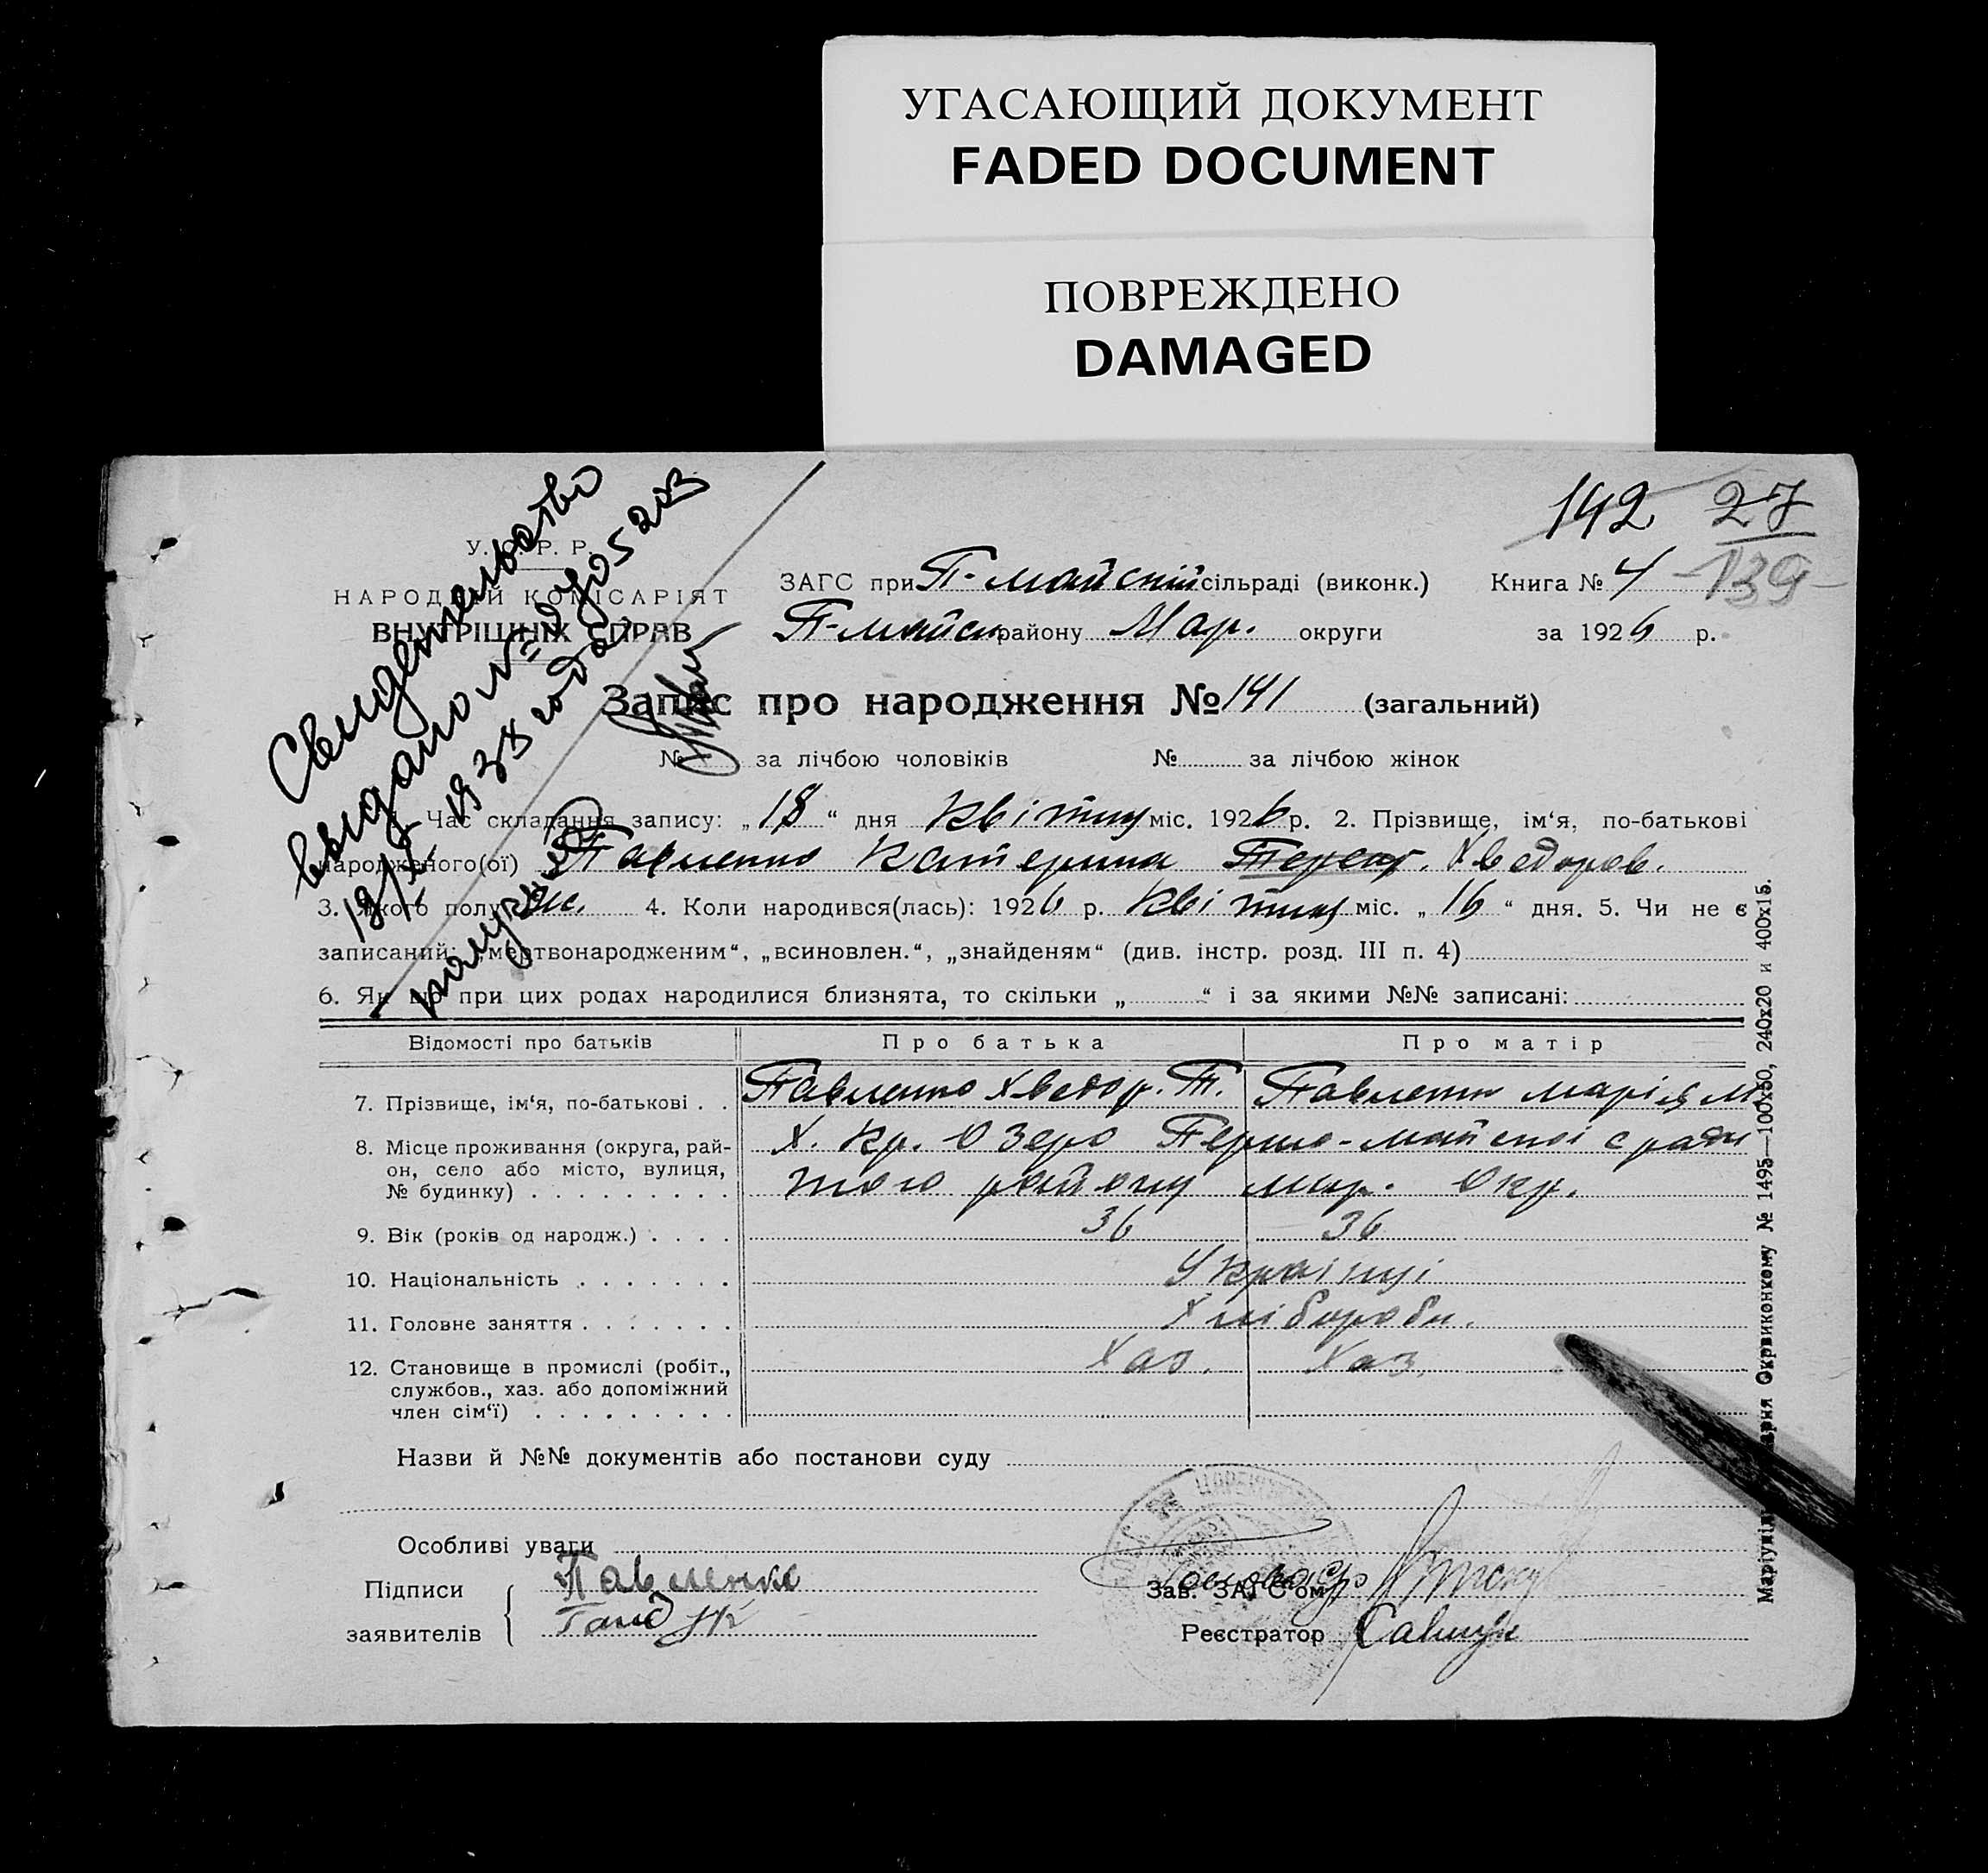 УГАСАЮЩИЙ ДОКУМЕНТ
FADED DOCUMENT
ПОВРЕЖДЕНО
DAMAGED
142 27
139
У. С. Р. Р.
НАРОДНІЙ КОМІСАРІЯТ
ВНУТРІШНІХ СПРАВ
Свидетельство
выдано №
1938 года
ЗАГС при П-майській сільраді (виконк.) Книга № 4
П-майськ району Мар. округи за 1926 р.
Запис про народження № 141 (загальний)
№ за лічбою чоловіків № за лічбою жінок
Час складання запису: „18“ дня Квітня міс. 1926 р. 2. Прізвище, ім‘я, по-батькові
народженого(ої) Павленко Катерина Хведоров.
3. Якого полу жін. 4. Коли народився(лась): 1926 р. Квітня міс. „16“ дня. 5. Чи не є
записаний: „мертвонародженим“, „всиновлен.“, „знайденям“ (див. інстр. розд. III п. 4)
6. Як що при цих родах народилися близнята, то скільки „ “ і за якими №№ записані:
Відомості про батьків Про батька Про матір
7. Прізвище, ім‘я, по-батькові . . Павленко Хведор. Т. Павленко Марія М.
8. Місце проживання (округа, рай- Х. Кр. Озеро Первo-майської с ради
он, село або місто, вулиця,
№ будинку) . . . . . . . . . того району мар. Окр.
9. Вік (років од народж.) . . . . 36 36
10. Національність . . . . . . . Українці
11. Головне заняття . . . . . . . Хлібороби.
12. Становище в промислі (робіт., Хаз. Хаз.
службов., хаз. або допоміжний
член сім‘ї) . . . . . . . . .
Назви й №№ документів або постанови суду
Особливі уваги
Підписи Павленко
заявителів
Зав. ЗАГС‘ом
Реєстратор
Окрвиконкому № 1495—100x50, 240x20 и 400x15.